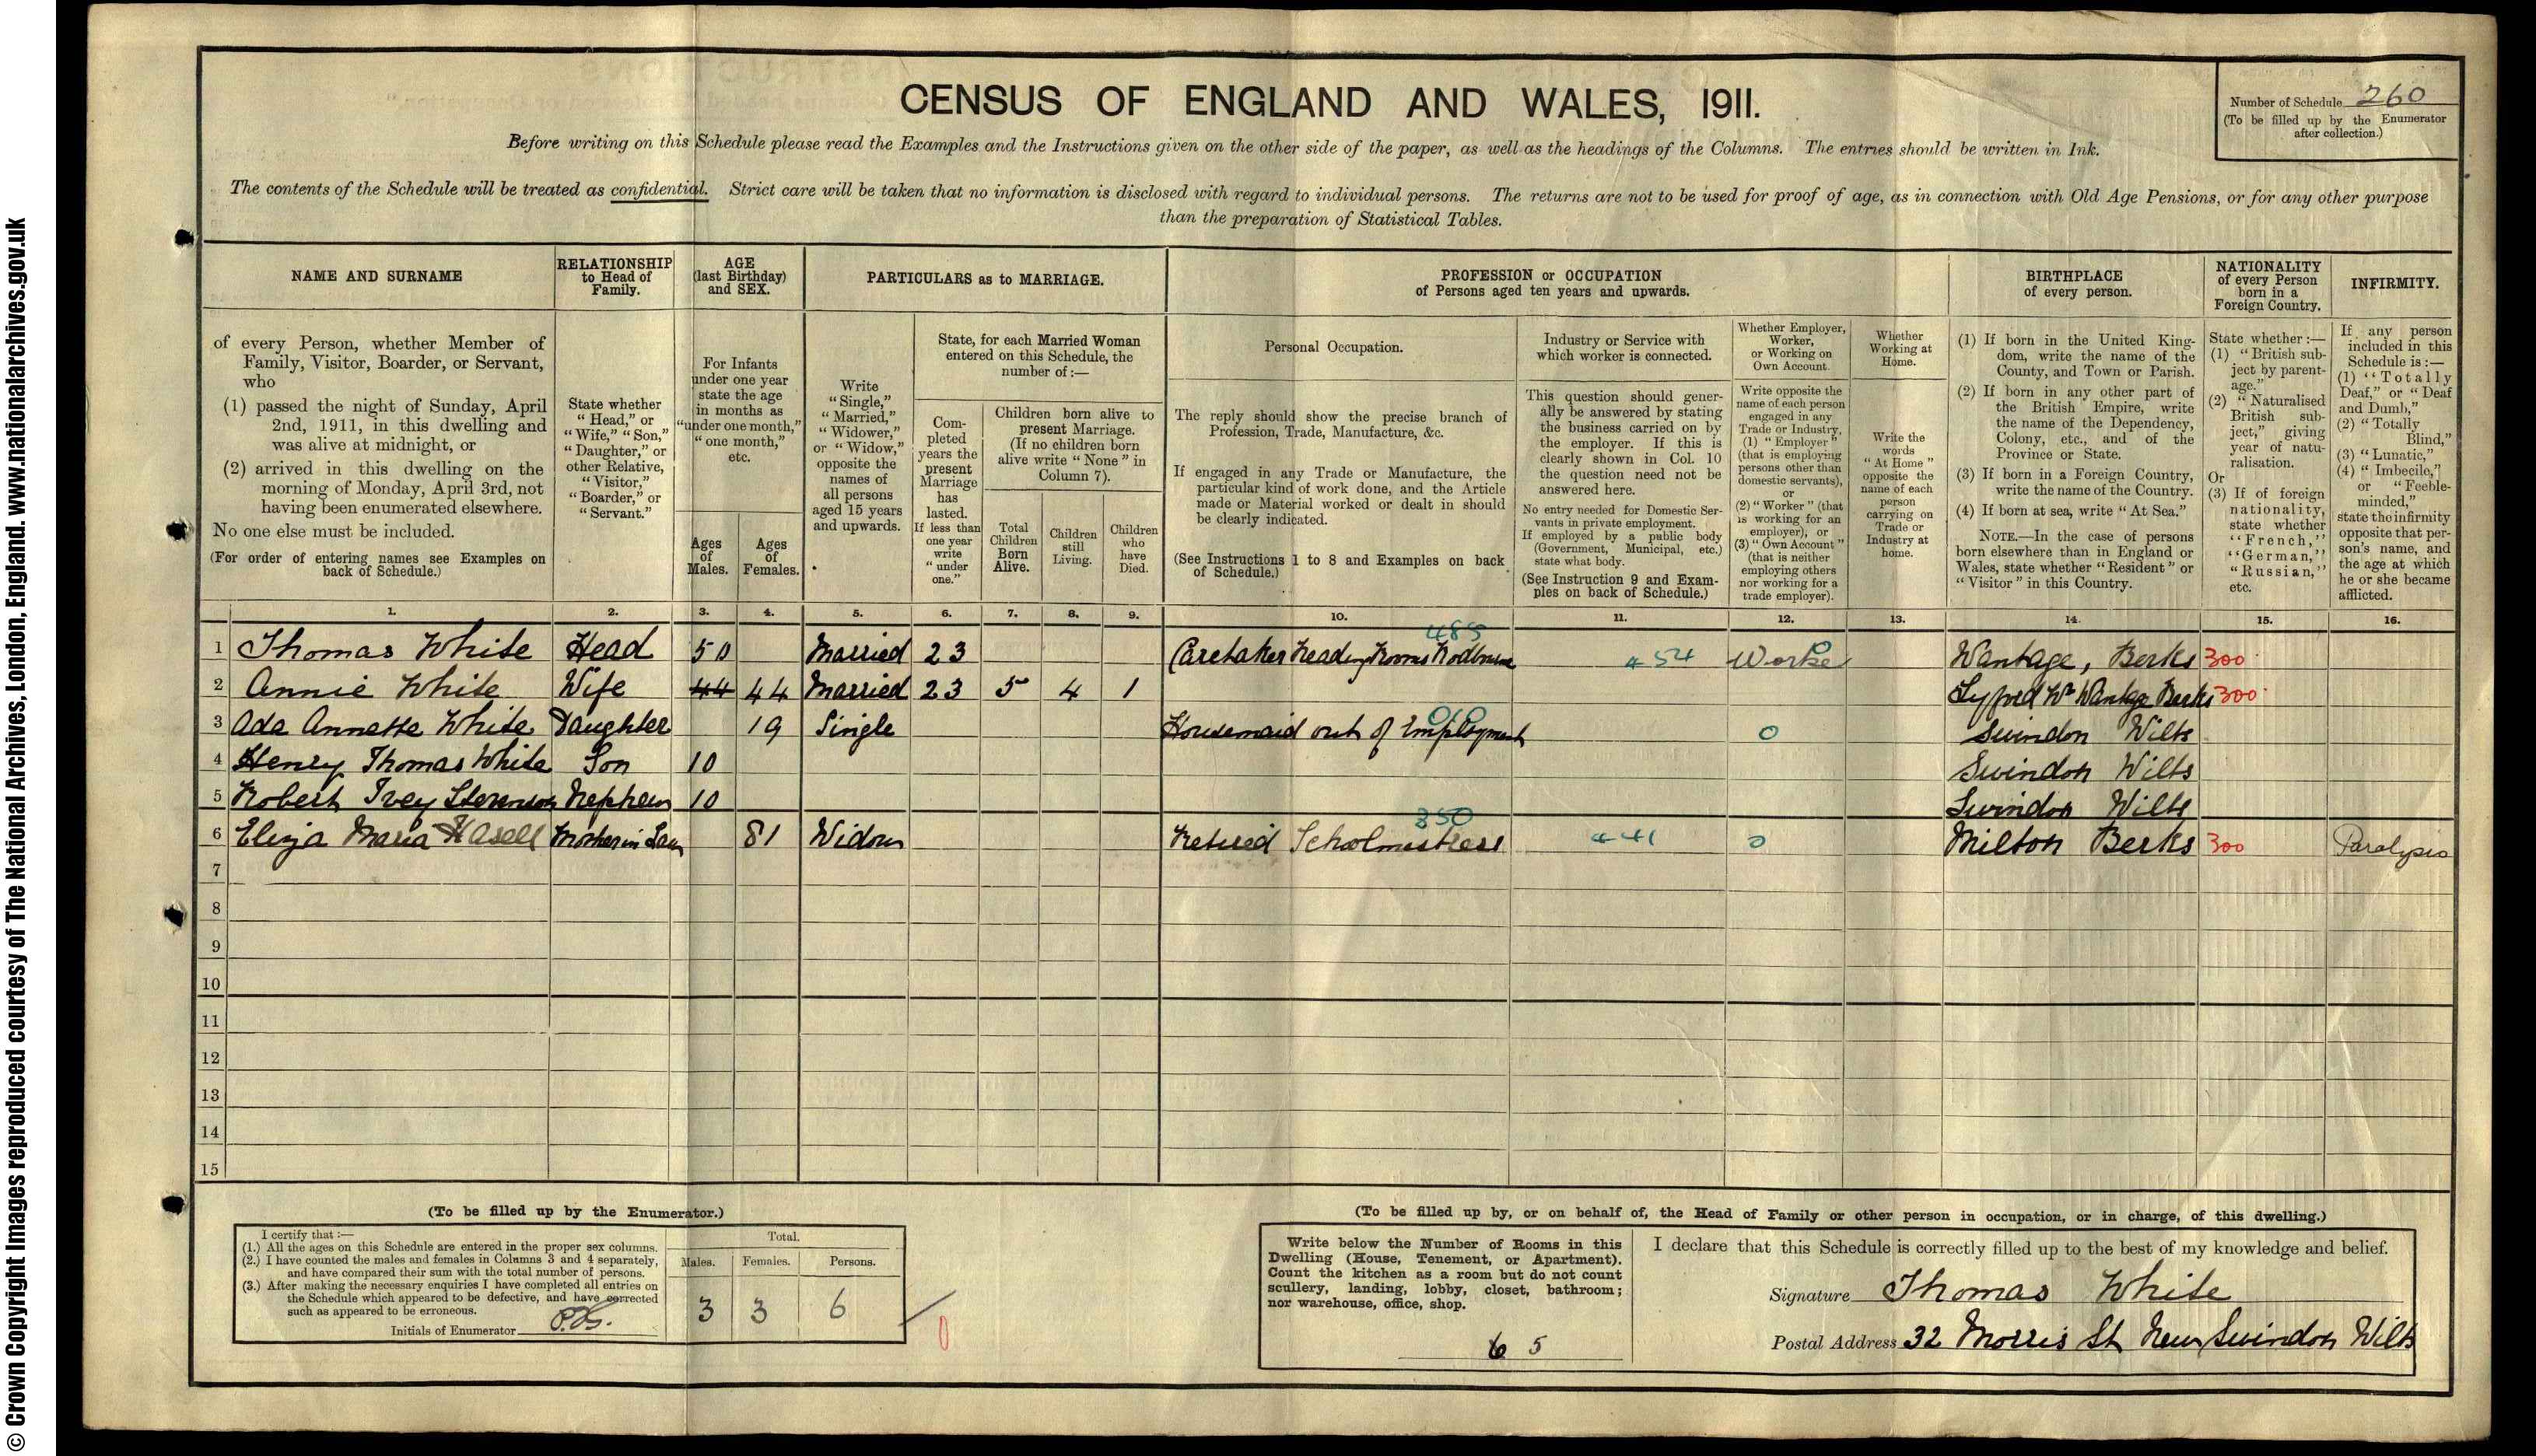 CENSUS OF ENGLAND AND WALES, 1911.
Number of Schedule 260
(To be filled up by the Enumerator
after collection.)
Before writing on this Schedule please read the Examples and the Instructions given on the other side of the paper, as well as the headings of the Columns. The entries should be written in Ink.
The contents of the Schedule will be treated as confidential. Strict care will be taken that no information is disclosed with regard to individual persons. The returns are not to be used for proof of age, as in connection with Old Age Pensions, or for any other purpose
than the preparation of Statistical Tables.
NAME AND SURNAME
of every Person, whether Member of
Family, Visitor, Boarder, or Servant,
who
(1) passed the night of Sunday, April
2nd, 1911, in this dwelling and
was alive at midnight, or
(2) arrived in this dwelling on the
morning of Monday, April 3rd, not
having been enumerated elsewhere.
No one else must be included.
(For order of entering names see Examples on
back of Schedule.)
RELATIONSHIP
to Head of
Family.
State whether
"Head," or
"Wife," "Son,"
"Daughter," or
other Relative,
"Visitor,"
"Boarder," or
"Servant."
AGE
(last Birthday)
and SEX.
For Infants
under one year
state the age
in months as
"under one month,"
"one month,"
etc.
Ages
of
Males.
Ages
of
Females.
PARTICULARS as to MARRIAGE.
Write
"Single,"
"Married,"
"Widower,"
or "Widow,"
opposite the
names of
all persons
aged 15 years
and upwards.
State, for each Married Woman
entered on this Schedule, the
number of:—
Com-
pleted
years the
present
Marriage
has
lasted.
If less than
one year
write
"under
one."
Children born alive to
present Marriage.
(If no children born
alive write "None" in
Column 7).
Total
Children
Born
Alive.
Children
still
Living.
Children
who
have
Died.
PROFESSION or OCCUPATION
of Persons aged ten years and upwards.
Personal Occupation.
The reply should show the precise branch of
Profession, Trade, Manufacture, &c.
If engaged in any Trade or Manufacture, the
particular kind of work done, and the Article
made or Material worked or dealt in should
be clearly indicated.
(See Instructions 1 to 8 and Examples on back
of Schedule.)
Industry or Service with
which worker is connected.
This question should gener-
ally be answered by stating
the business carried on by
the employer. If this is
clearly shown in Col. 10
the question need not be
answered here.
No entry needed for Domestic Ser-
vants in private employment.
If employed by a public body
(Government, Municipal, etc.)
state what body.
(See Instruction 9 and Exam-
ples on back of Schedule.)
Whether Employer,
Worker,
or Working on
Own Account.
Write opposite the
name of each person
engaged in any
Trade or Industry,
(1) "Employer"
(that is employing
persons other than
domestic servants),
or
(2) "Worker" (that
is working for an
employer), or
(3) "Own Account"
(that is neither
employing others
nor working for a
trade employer).
Whether
Working at
Home.
Write the
words
"At Home"
opposite the
name of each
person
carrying on
Trade or
Industry at
home.
BIRTHPLACE
of every person.
(1) If born in the United King-
dom, write the name of the
County, and Town or Parish.
(2) If born in any other part of
the British Empire, write
the name of the Dependency,
Colony, etc., and of the
Province or State.
(3) If born in a Foreign Country,
write the name of the Country.
(4) If born at sea, write "At Sea."
NOTE.—In the case of persons
born elsewhere than in England or
Wales, state whether "Resident" or
"Visitor" in this Country.
NATIONALITY
of every Person
born in a
Foreign Country.
State whether:—
(1) "British sub-
ject by parent-
age."
(2) "Naturalised
British sub-
ject," giving
year of natu-
ralisation.
Or
(3) If of foreign
nationality,
state whether
"French,"
"German,"
"Russian,"
etc.
INFIRMITY.
If any person
included in this
Schedule is:—
(1) "Totally
Deaf," or "Deaf
and Dumb,"
(2) "Totally
Blind,"
(3) "Lunatic,"
(4) "Imbecile,"
or "Feeble-
minded,"
state the infirmity
opposite that per-
son's name, and
the age at which
he or she became
afflicted.
1. 2. 3. 4. 5. 6. 7. 8. 9. 10. 11. 12. 13. 14. 15. 16.
485
1 Thomas White Head 50 Married 23 Caretaker Reading Rooms Rodbourne 454 Worker 0 Wantage, Berks 300
2 Annie White Wife 44 44 Married 23 5 4 1 Lyford Nr Wantage Berks 300
060
3 Ada Annette White Daughter 19 Single Housemaid out of Employment 0 Swindon Wilts
4 Henry Thomas White Son 10 Swindon Wilts
5 Robert Ivey Stevenson Nephew 10 Swindon Wilts
350
6 Eliza Maria Hasell Mother in Law 81 Widow Retired Schoolmistress 441 0 Milton Berks 300 Paralysis
7
8
9
10
11
12
13
14
15
(To be filled up by the Enumerator.)
I certify that:—
(1.) All the ages on this Schedule are entered in the proper sex columns.
(2.) I have counted the males and females in Columns 3 and 4 separately,
and have compared their sum with the total number of persons.
(3.) After making the necessary enquiries I have completed all entries on
the Schedule which appeared to be defective, and have corrected
such as appeared to be erroneous.
Initials of Enumerator
Total.
Males. Females. Persons.
3 3 6
0
(To be filled up by, or on behalf of, the Head of Family or other person in occupation, or in charge, of this dwelling.)
Write below the Number of Rooms in this
Dwelling (House, Tenement, or Apartment).
Count the kitchen as a room but do not count
scullery, landing, lobby, closet, bathroom;
nor warehouse, office, shop.
6 5
I declare that this Schedule is correctly filled up to the best of my knowledge and belief.
Signature Thomas White
Postal Address 32 Morris St New Swindon Wilts
© Crown Copyright Images reproduced courtesy of The National Archives, London, England. www.nationalarchives.gov.uk